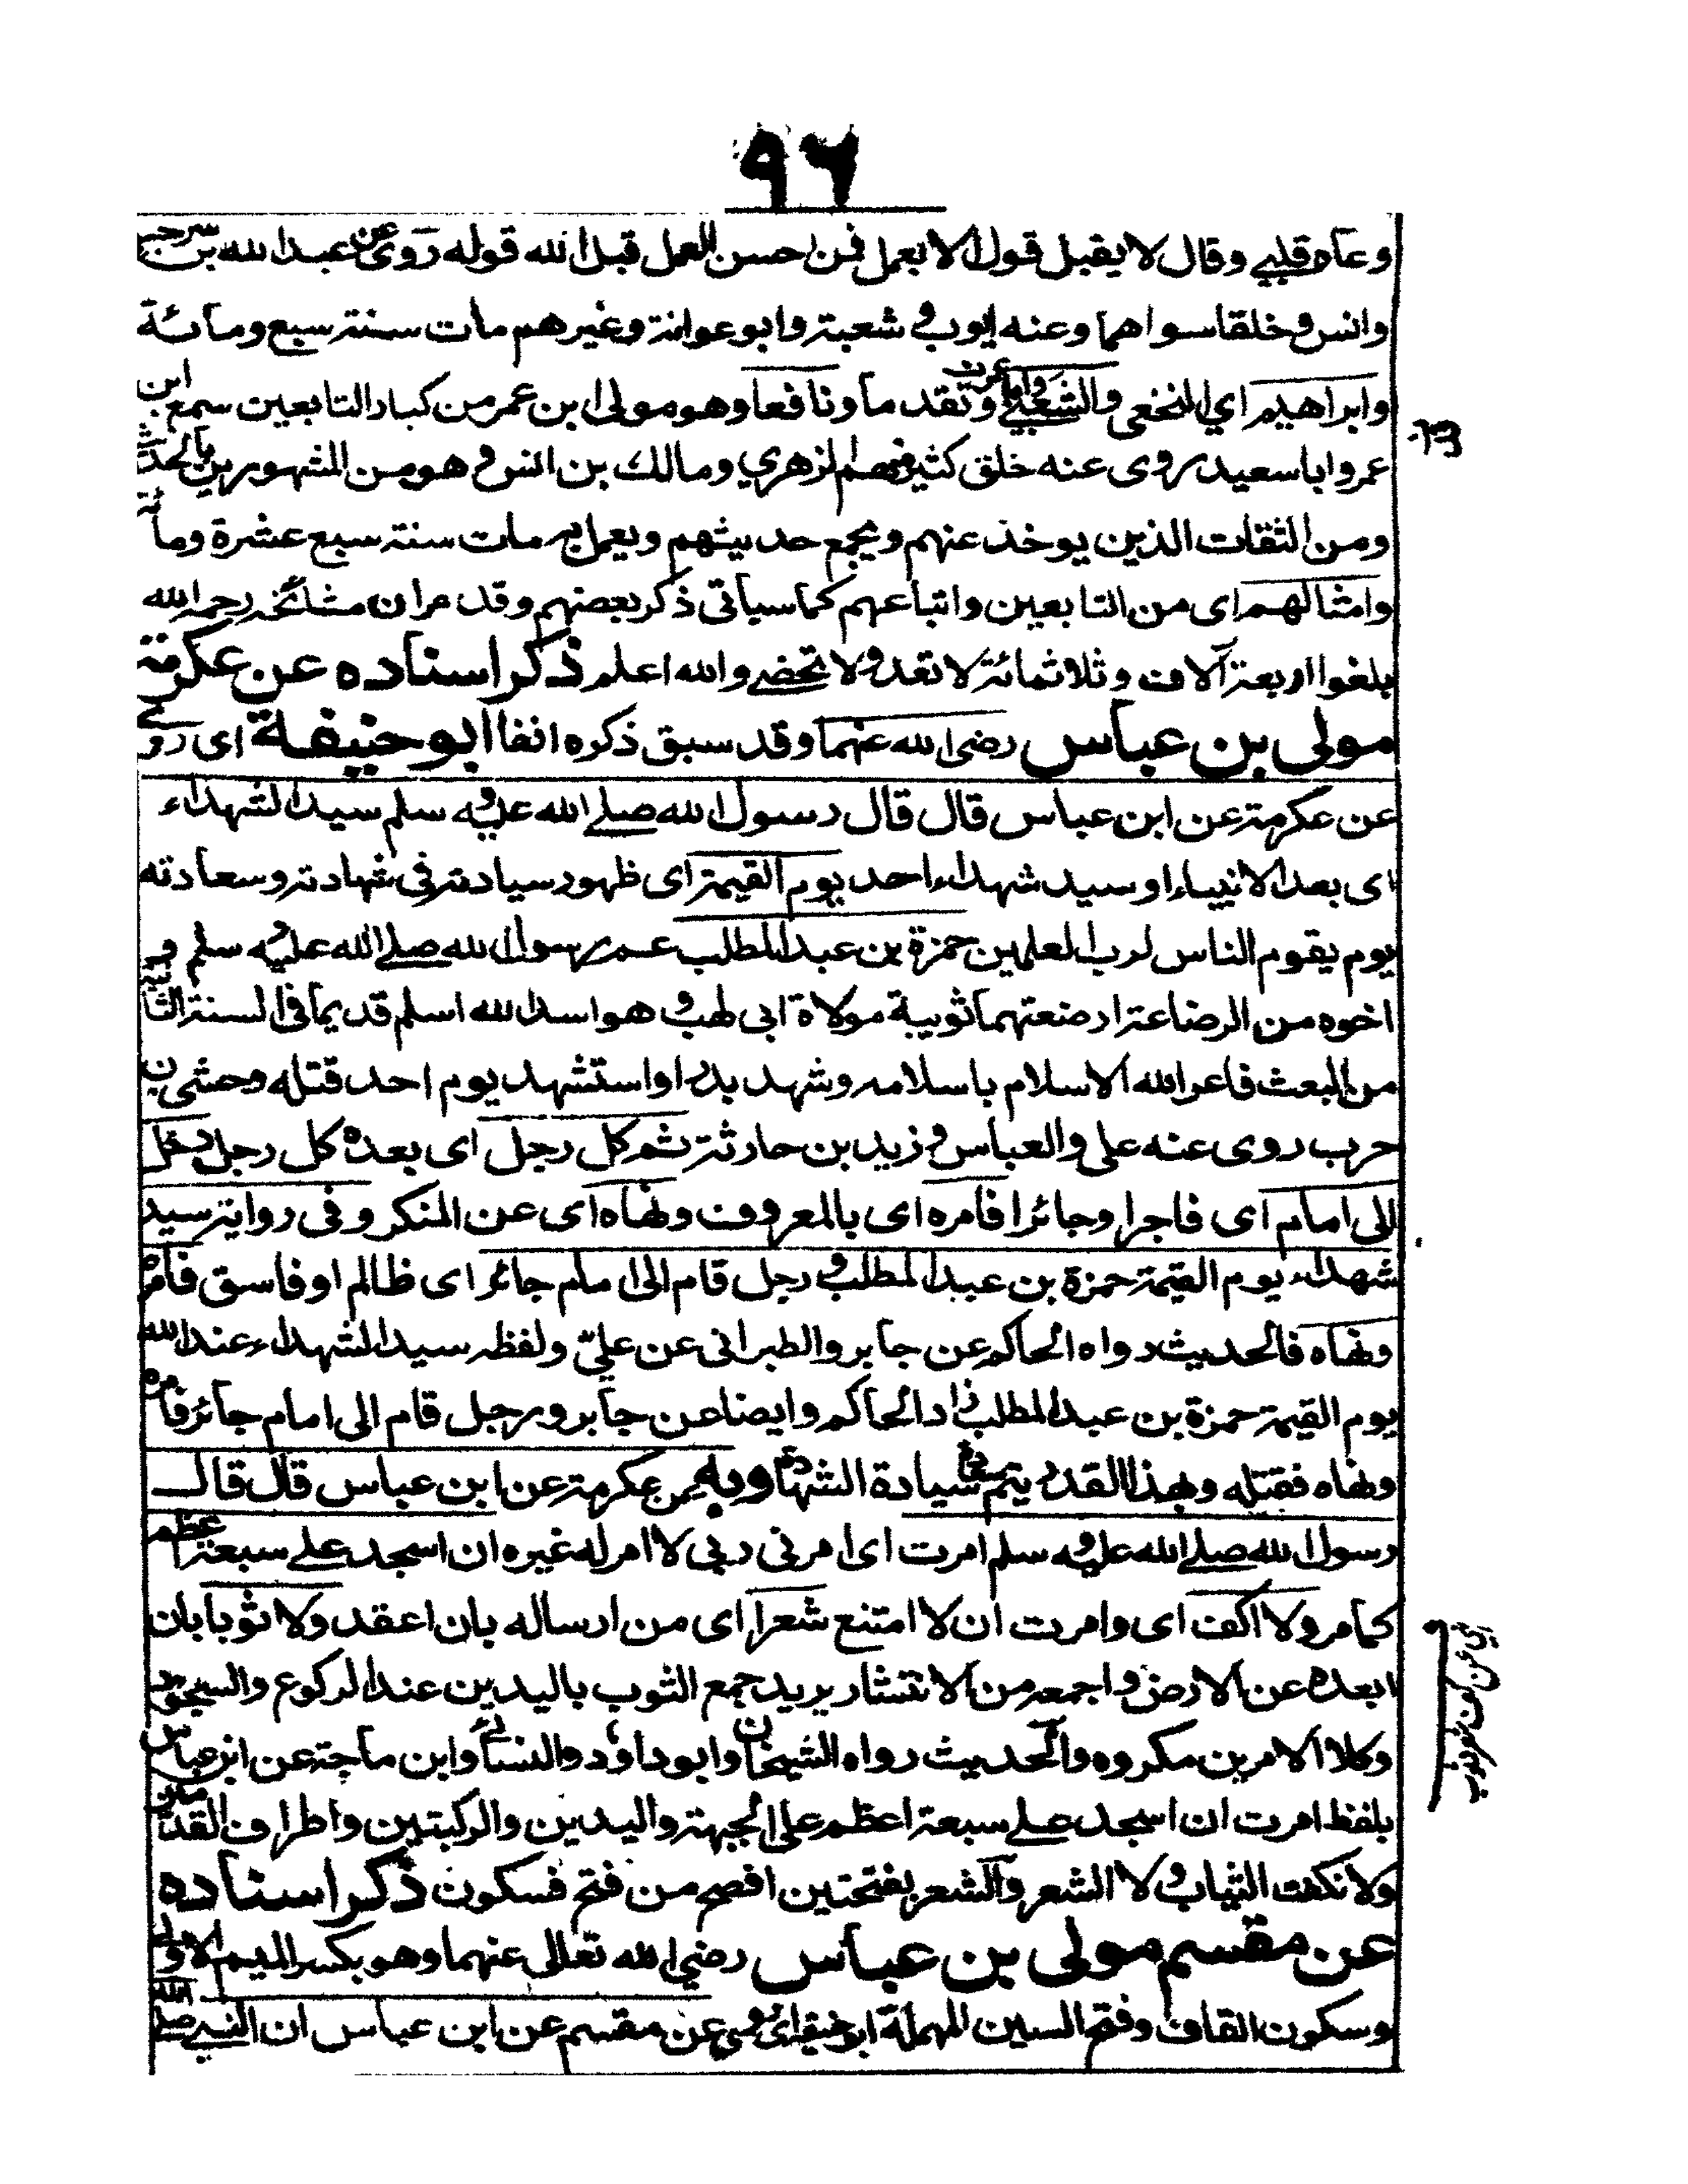 ٩٦
وعاه قلبي وقال لا يقبل قول الا بعمل فمن احسن العمل قبل الله قوله روى عن عبد الله بن سرجس
وانس وخلقا سواهما وعنه ايوب و شعبة وابو عوانة وغيرهم مات سنة سبع ومائة
وابراهيم اي النخعي والشعبي وتقدما ونافعا وهو مولى ابن عمر من كبار التابعين سمع ابن
عمر وابا سعيد روى عنه خلق كثير منهم الزهري ومالك بن انس و هو من المشهورين بالحديث
ومن الثقات الذين يوخذ عنهم ويجمع حديثهم ويعمل به مات سنة سبع عشرة ومائة
وامثالهم اى من التابعين واتباعهم كما سياتى ذكر بعضهم وقد مر ان مشائخه رحمه الله
بلغوا اربعة آلاف و ثلاثمائة لا تعد ولا تحصے والله اعلم ذكر اسناده عن عكرمة
مولى بن عباس رضى الله عنهما وقد سبق ذكره انفا ابو حنيفة اى روى
عن عكرمة عن ابن عباس قال قال رسول الله صلے الله عليه و سلم سيد الشهداء
اى بعد الانبياء او سيد شهداء احد يوم القيمة اى ظهور سيادته فى شهادته وسعادته
يوم يقوم الناس لرب العلمين حمزة بن عبد المطلب عم رسول الله صلے الله عليه و سلم و
اخوه من الرضاعة ارضعتهما ثويبة مولاة ابى لهب و هو اسد الله اسلم قديما فى السنة الثانية
من البعث فاعز الله الاسلام باسلامه وشهد بدرا واستشهد يوم احد قتله وحشى بن
حرب روى عنه على والعباس و زيد بن حارثة ثم كل رجل اى بعده كل رجل دخل
الى امام اى فاجرا وجائرا فامره اى بالمعروف ونهاه اى عن المنكر و فى رواية سيد
شهداء يوم القيمة حمزة بن عبد المطلب و رجل قام الى امام جائر اى ظالم او فاسق فامره
ونهاه فالحديث رواه الحاكم عن جابر والطبرانى عن علىّ ولفظه سيد الشهداء عند الله
يوم القيمة حمزة بن عبد المطلب زاد الحاكم وايضا عن جابر ورجل قام الى امام جائر فامره
ونهاه فقتله وبهذا القدر يتم سيادة الشهادة وبه عن عكرمة عن ابن عباس قال قال
رسول الله صلے الله عليه و سلم امرت اى امرنى ربى لا امر له غيره ان اسجد علے سبعة اعظم
كما مر ولا اكف اى وامرت ان لا امتنع شعرا اى من ارساله بان اعقد ولا ثوبا بان
ابعده عن الارض و اجمعه من الانتشار يريد جمع الثوب باليدين عند الركوع والسجود
وكلا الامرين مكروه والحديث رواه الشيخان وابو داود والنسائے وابن ماجة عن ابن عباس
بلفظ امرت ان اسجد علے سبعة اعظم على الجبهة واليدين والركبتين واطراف القدمين
ولا نكفت الثياب و لا الشعر والشعر بفتحتين افصح من فتح فسكون ذكر اسناده
عن مقسم مولى بن عباس رضى الله تعالى عنهما وهو بكسر الميم الاولے
وسكون القاف وفتح السين المهملة ابو حنيفة اى روى عن مقسم عن ابن عباس ان النبى صلے الله